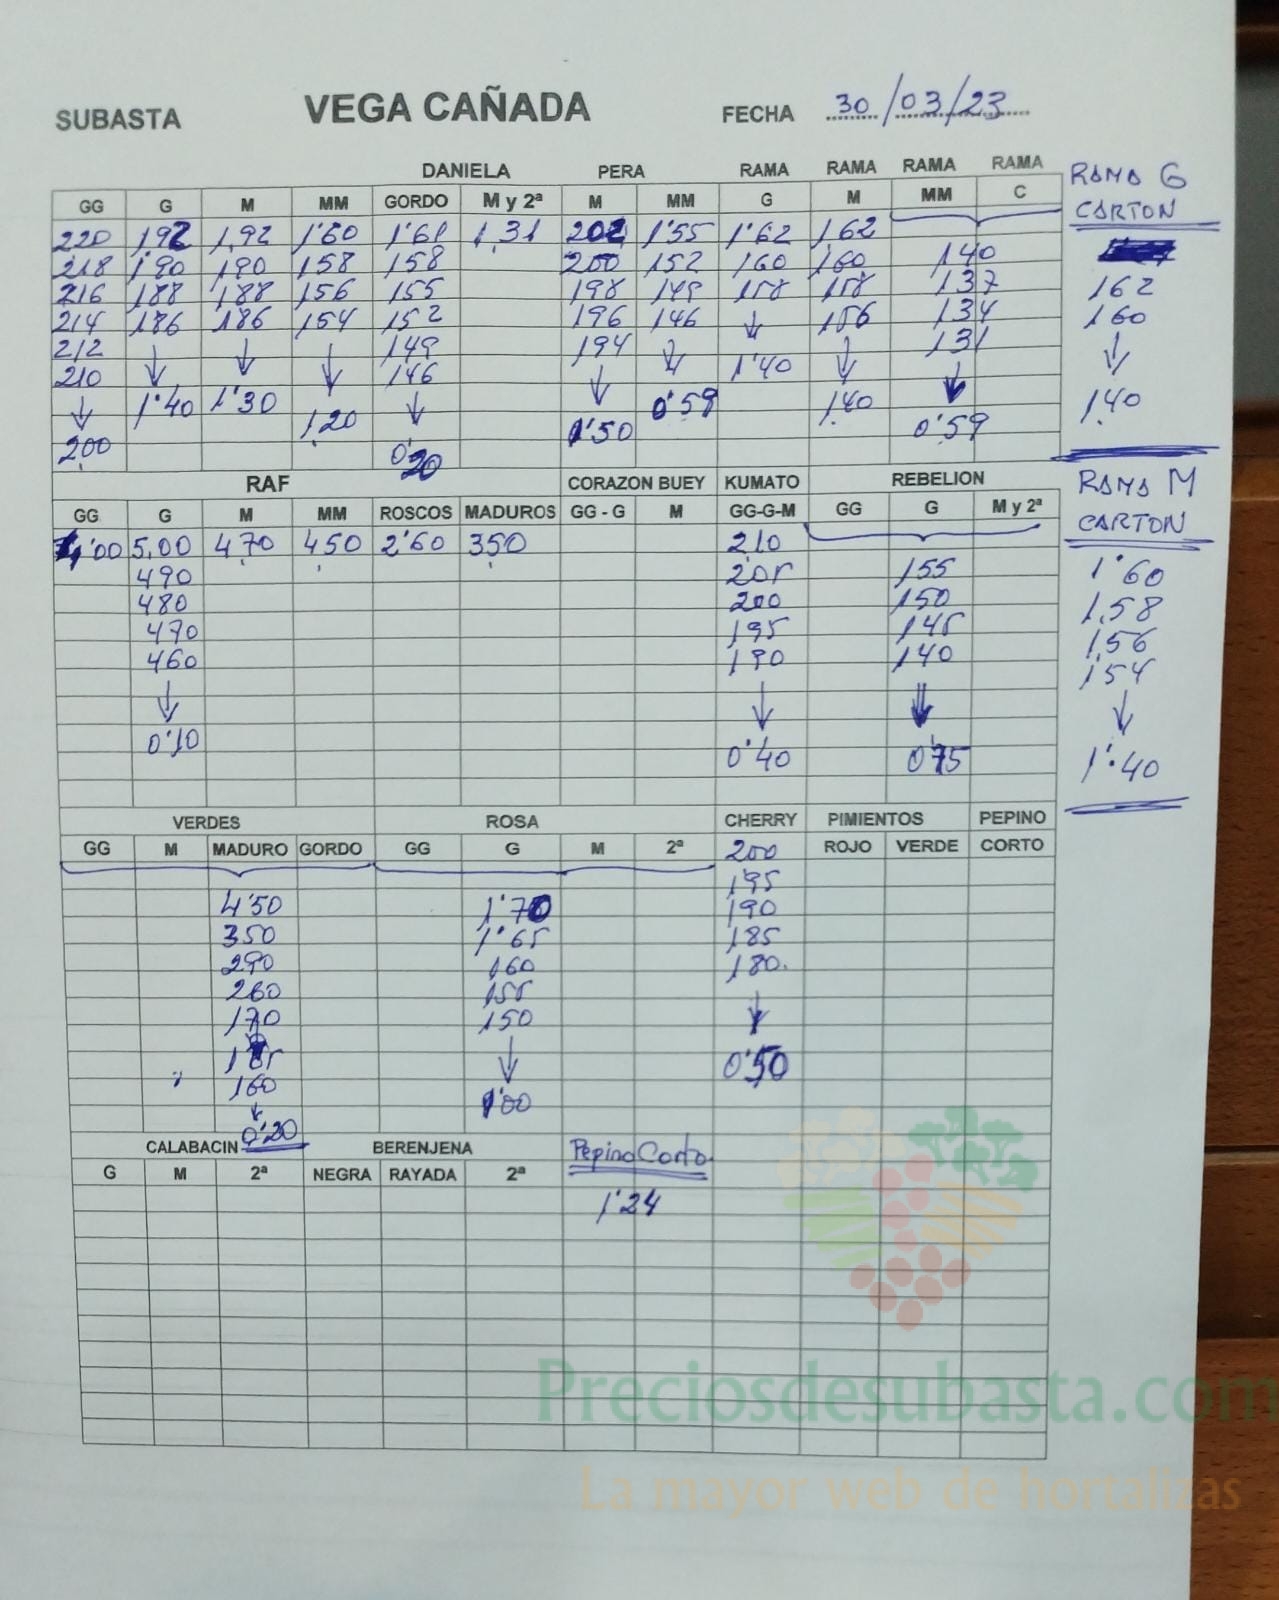 SUBASTA VEGA CAÑADA FECHA 30/03/23
DANIELA PERA RAMA RAMA RAMA RAMA RAMA G
GG G M MM GORDO M y 2ª M MM G M MM C CARTON
220 192 1,92 1'60 1'61 1,31 202 1'55 1'62 162
218 1'90 190 158 158 200 152 160 160 140
216 188 188 156 155 198 149 158 158 137 162
214 186 186 154 152 196 146 ↓ 156 134 160
212 ↓ ↓ ↓ 149 194 ↓ 1'40 ↓ 131 ↓
210 1'40 1'30 120 146 ↓ 0'59 140 ↓ 140
↓ ↓ 1'50 0'59
200 0'20
RAF CORAZON BUEY KUMATO REBELION RAMA M
GG G M MM ROSCOS MADUROS GG - G M GG-G-M GG G M y 2ª CARTON
5,00 470 450 2'60 350 210
490 205 155 1'60
480 200 150 1,58
470 195 145 1,56
460 190 140 154
↓ ↓ ↓ ↓
0'10 0'40 0'75 1'40
VERDES ROSA CHERRY PIMIENTOS PEPINO
GG M MADURO GORDO GG G M 2ª 200 ROJO VERDE CORTO
195
4'50 1'70 190
350 1'65 185
290 160 180.
260 155
170 150 ↓
↓ 0'50
160 1'00
↓
0'20
CALABACIN BERENJENA Pepino Corto
G M 2ª NEGRA RAYADA 2ª
1'24
Preciosdesubasta.com
La mayor web de hortalizas